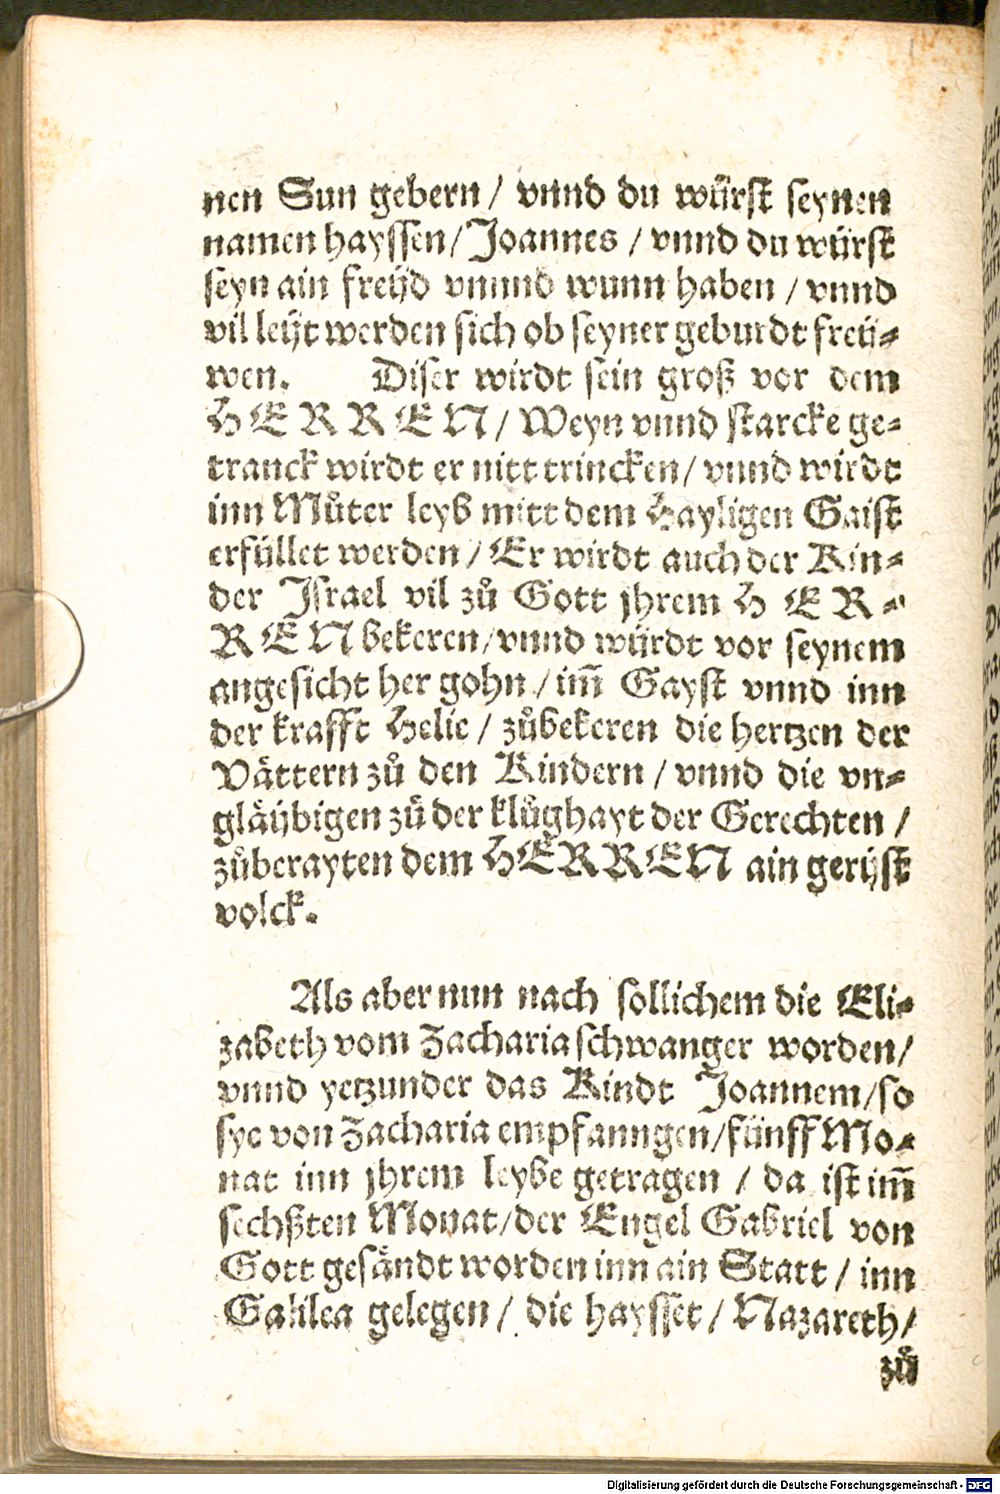 nen Sun gebern / vnnd du würst seynen
namen hayssen / Joannes / vnnd du würst
seyn ain freÿd vnnnd wunn haben / vnnd
vil leÿt werden sich ob seyner geburdt freü⸗
wen. Diser wirdt sein groß vor dem
HERREN / Weyn vnnd starcke ge⸗
tranck wirdt er nitt trincken / vnnd wirdt
inn Můter leyb mitt dem Hayligen Gaist
erfüllet werden / Er wirdt auch der Kin⸗
der Jsrael vil zů Gott jhrem HER⸗
REN bekeren / vnnd würdt vor seynem
angesicht her gohn / im̃ Gayst vnnd inn
der krafft Helie / zůbekeren die hertzen der
Vättern zů den Kindern / vnnd die vn⸗
gläÿbigen zů der klůghayt der Gerechten /
zůberayten dem HERREN ain gerÿst
volck.
Als aber nun nach sollichem die Eli⸗
zabeth vom Zacharia schwanger worden /
vnnd yetzunder das Kindt Joannem / so
sye von Zacharia empfanngen / fünff Mo⸗
nat inn jhrem leybe getragen / da ist im̃
sechßten Monat / der Engel Gabriel von
Gott gesändt worden inn ain Statt / inn
Galilea gelegen / die haysset / Nazareth /
zů
Digitalisierung gefördert durch die Deutsche Forschungsgemeinschaft - DFG